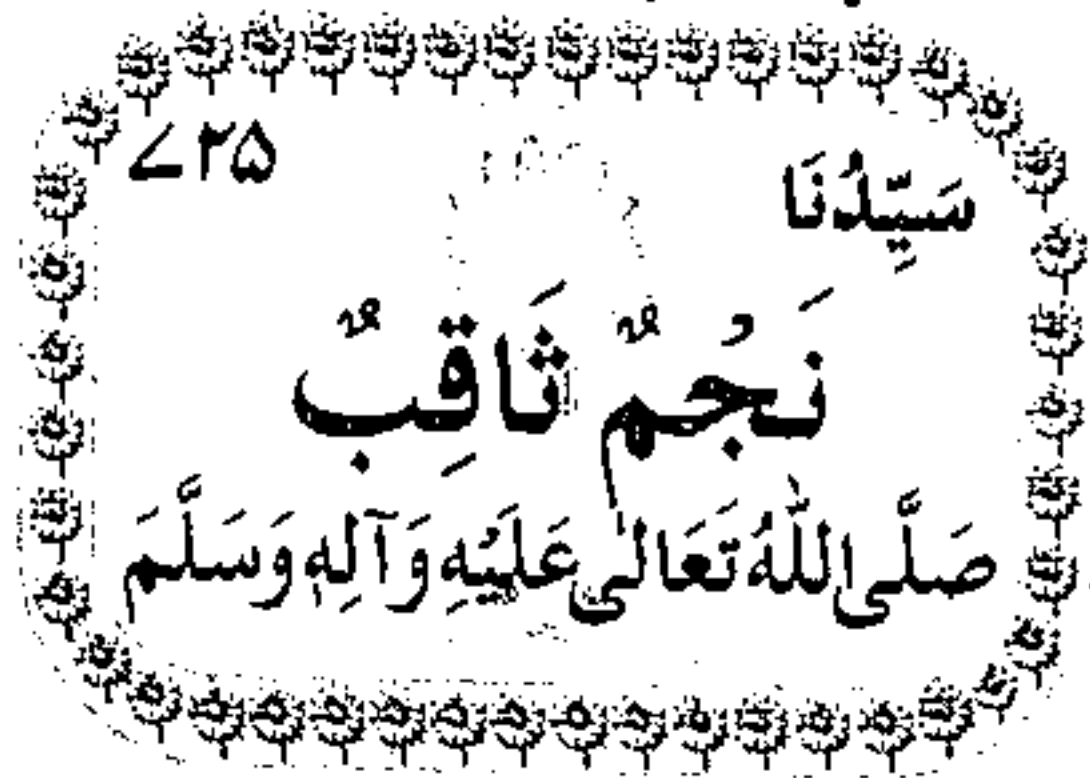 سَيِّدُنَا ۷۲۵
نَجْمٌ ثَاقِبٌ
صَلَّى اللهُ تَعَالٰى عَلَيْهِ وَآلِهٖ وَسَلَّمَ